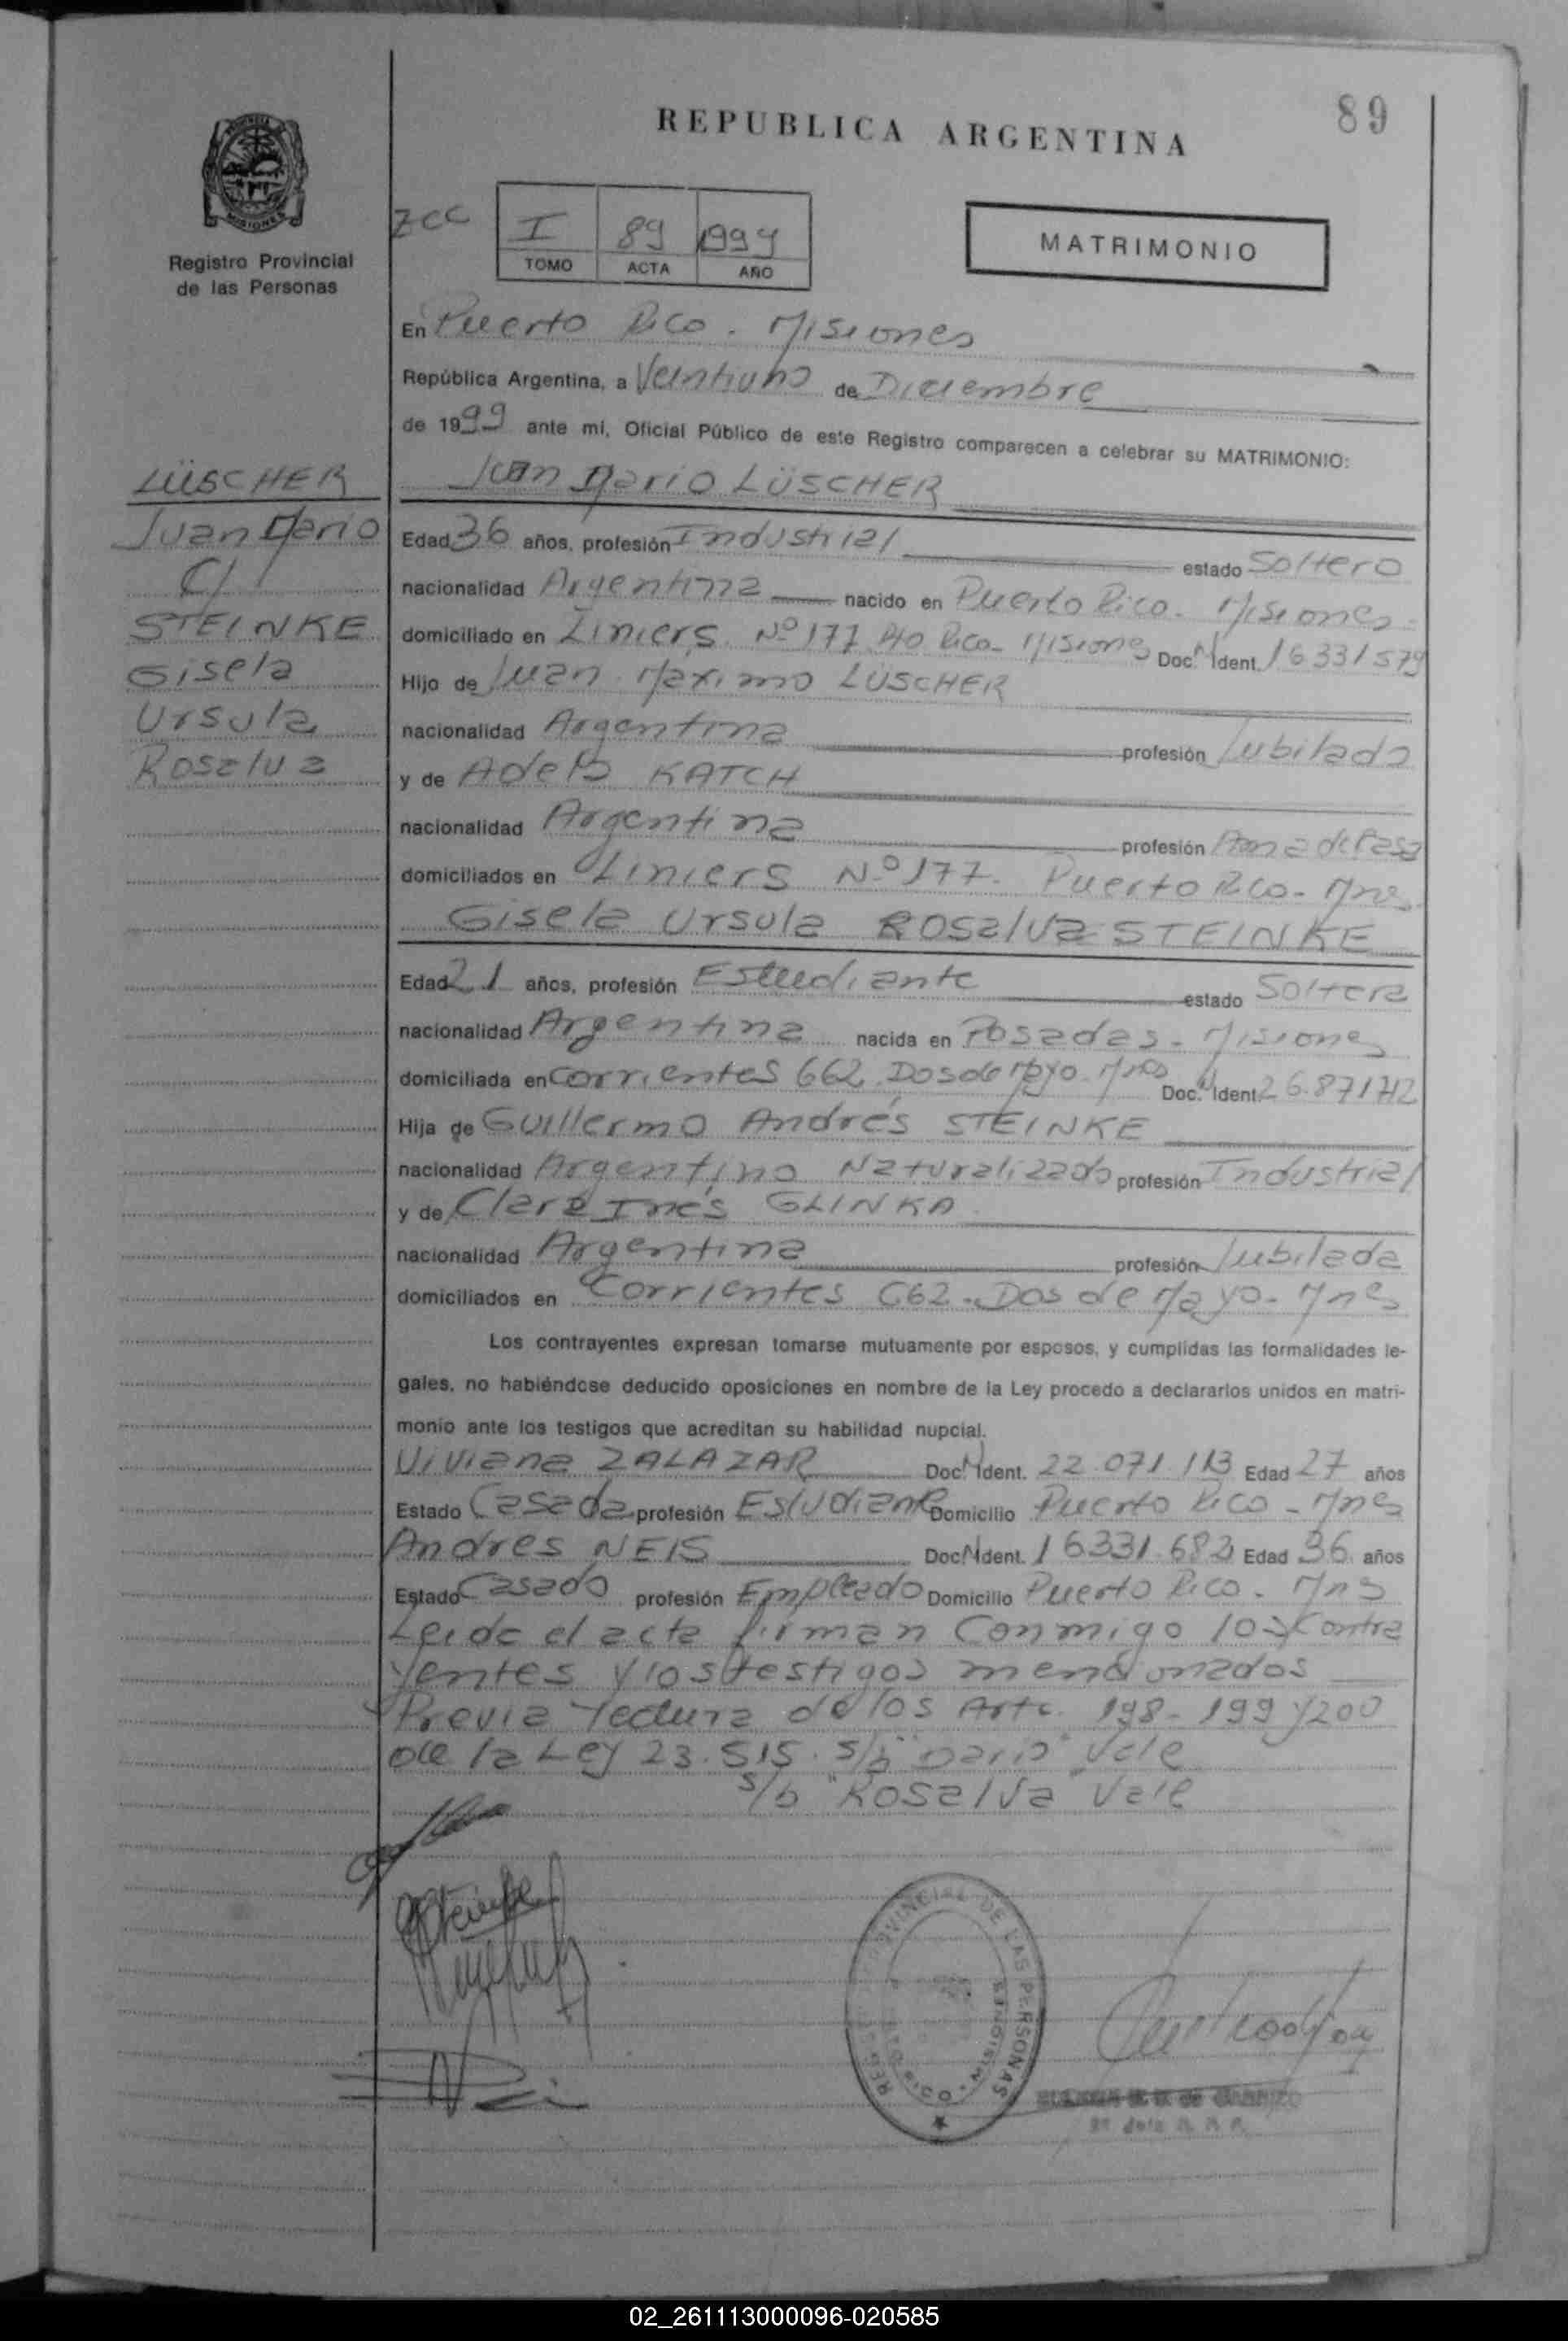 89
REPUBLICA ARGENTINA
PROVINCIA
MISIONES
Registro Provincial
de las Personas
ZCC
I 89 1999
TOMO ACTA AÑO
MATRIMONIO
En Puerto Rico - Misiones
República Argentina, a Veintiuno de Diciembre
de 1999 ante mí, Oficial Público de este Registro comparecen a celebrar su MATRIMONIO:
LÜSCHER
Juan Dario
C/
STEINKE
Gisela
Ursula
Rosalva
Juan Dario LÜSCHER
Edad 36 años, profesión Industrial estado Soltero
nacionalidad Argentina nacido en Puerto Rico - Misiones -
domiciliado en Liniers Nº 177 Pto Rico - Misiones Doc. N Ident. 16331579
Hijo de Juan Maximo LÜSCHER
nacionalidad Argentina profesión Jubilado
y de Adela KATCH
nacionalidad Argentina profesión Ama de Casa
domiciliados en Liniers Nº 177. Puerto Rico - Mnes.
Gisela Ursula Rosalva STEINKE
Edad 21 años, profesión Estudiante estado Soltera
nacionalidad Argentina nacida en Posadas - Misiones
domiciliada en Corrientes 662 Dos de Mayo. Mnes Doc. N Ident. 26.871712
Hija de Guillermo Andrés STEINKE
nacionalidad Argentino Naturalizado profesión Industrial
y de Clara Inés GLINKA
nacionalidad Argentina profesión Jubilada
domiciliados en Corrientes 662 - Dos de Mayo - Mnes
Los contrayentes expresan tomarse mutuamente por esposos, y cumplidas las formalidades le-
gales, no habiéndose deducido oposiciones en nombre de la Ley procedo a declararlos unidos en matri-
monio ante los testigos que acreditan su habilidad nupcial.
Viviana ZALAZAR Doc. N Ident. 22.071.113 Edad 27 años
Estado Casada profesión Estudiante Domicilio Puerto Rico - Mnes
Andres NEIS Doc. N Ident. 16331.682 Edad 36 años
Estado Casado profesión Empleado Domicilio Puerto Rico - Mns
Leida el acta firman Conmigo los Contra
yentes y los testigos mencionados
Previa lectura de los Arts. 198 - 199 y 200
de la Ley 23.515. s/b "Dario" Vale
s/b "Rosalva" Vale
GSteinke
PROVINCIAL DE LAS PERSONAS
MISIONES
02_261113000096-020585